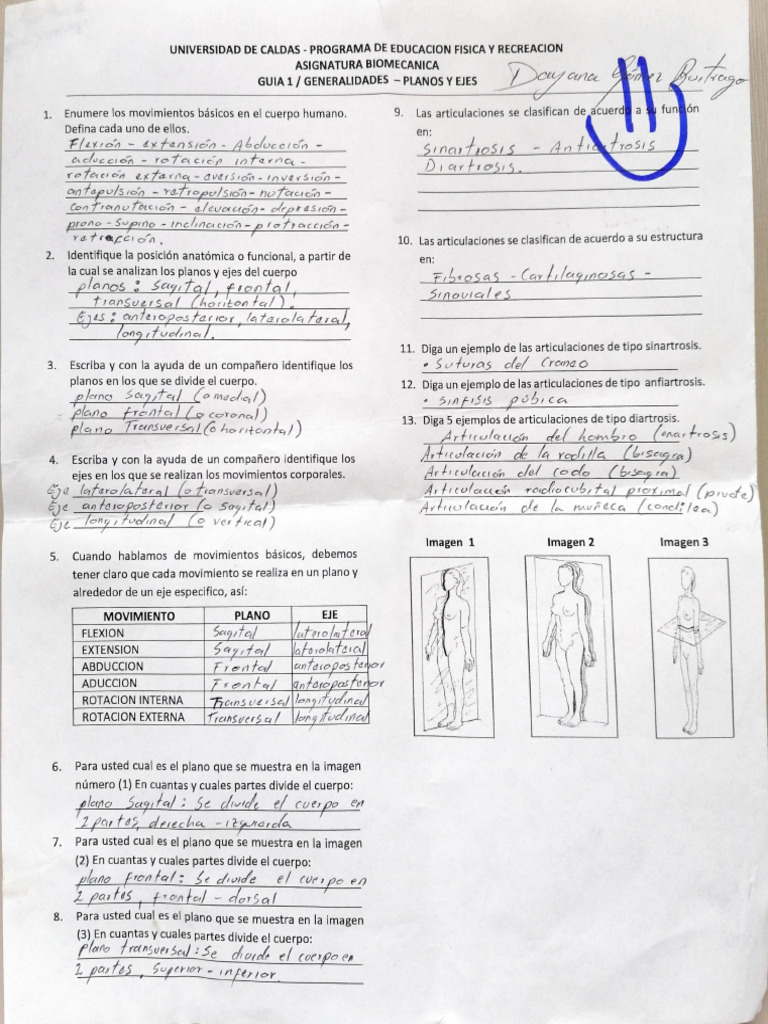 UNIVERSIDAD DE CALDAS - PROGRAMA DE EDUCACION FISICA Y RECREACION
ASIGNATURA BIOMECANICA
GUIA 1 / GENERALIDADES – PLANOS Y EJES
Dayana Gómez Buitrago
1. Enumere los movimientos básicos en el cuerpo humano.
Defina cada uno de ellos.
Flexión - extensión - Abducción -
aducción - rotación interna -
rotación externa - eversión - inversión -
antepulsión - retropulsión - nutación -
contranutación - elevación - depresión -
prono - supino - inclinación - protracción -
retracción.
2. Identifique la posición anatómica o funcional, a partir de
la cual se analizan los planos y ejes del cuerpo
planos: sagital, frontal,
transversal (horitontal).
Ejes: anteroposterior, laterolateral,
longitudinal.
3. Escriba y con la ayuda de un compañero identifique los
planos en los que se divide el cuerpo.
plano sagital (o medial)
plano frontal (o coronal)
plano Transversal (o horitontal)
4. Escriba y con la ayuda de un compañero identifique los
ejes en los que se realizan los movimientos corporales.
Eje laterolateral (o transversal)
Eje anteroposterior (o sagital)
Eje longitudinal (o vertical)
5. Cuando hablamos de movimientos básicos, debemos
tener claro que cada movimiento se realiza en un plano y
alrededor de un eje especifico, así:
MOVIMIENTO PLANO EJE
FLEXION Sagital laterolateral
EXTENSION Sagital laterolateral
ABDUCCION Frontal anteroposterior
ADUCCION Frontal anteroposterior
ROTACION INTERNA Transversal longitudinal
ROTACION EXTERNA Transversal longitudinal
6. Para usted cual es el plano que se muestra en la imagen
número (1) En cuantas y cuales partes divide el cuerpo:
plano Sagital: Se divide el cuerpo en
2 partes, derecha - izquierda
7. Para usted cual es el plano que se muestra en la imagen
(2) En cuantas y cuales partes divide el cuerpo:
plano frontal: Se divide el cuerpo en
2 partes, frontal - dorsal
8. Para usted cual es el plano que se muestra en la imagen
(3) En cuantas y cuales partes divide el cuerpo:
plano transversal: Se divide el cuerpo en
2 partes, Superior - inferior.
9. Las articulaciones se clasifican de acuerdo a su función
en:
Sinartrosis - Antiartrosis
Diartrosis.
10. Las articulaciones se clasifican de acuerdo a su estructura
en:
Fibrosas - Cartilaginosas -
Sinoviales
11. Diga un ejemplo de las articulaciones de tipo sinartrosis.
• Suturas del Craneo
12. Diga un ejemplo de las articulaciones de tipo anfiartrosis.
• sinfisis púbica
13. Diga 5 ejemplos de articulaciones de tipo diartrosis.
Articulación del hombro (enartrosis)
Articulación de la rodilla (bisagra)
Articulación del codo (bisagra)
Articulación radiocubital proximal (pivote)
Articulación de la muñeca (condilea)
Imagen 1 Imagen 2 Imagen 3